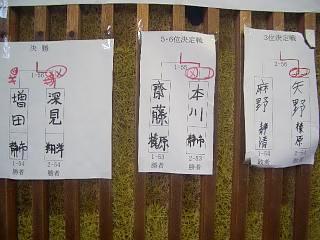 決勝
1-56
増田
深見
静市
翔洋
1-54
勝者
2-54
勝者
5・6位決定戦
1-55
齋藤
本川
榛原
静市
1-53
勝者
2-53
勝者
3位決定戦
2-56
麻野
矢野
静清
榛原
1-54
敗者
2-54
敗者